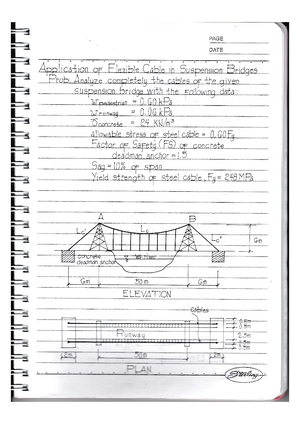 PAGE
DATE
Application of Flexible Cable in Suspension Bridges
Prob. Analyze completely the cables of the given
suspension bridge with the following data:
Wpedestrian = 0.60 kPa
Wrunway = 0.06 kPa
γconcrete = 24 KN/m³
allowable stress of steel cable = 0.60Fy
Factor of Safety (FS) of concrete
deadman, anchor = 1.5
Sag = 10% of span
Yield strength of steel cable, Fy = 248 MPa
A B
Lc' Lc Lc'
6m
concrete
deadman anchor
6m 50m 6m
ELEVATION
cables
Runway
50m
PLAN